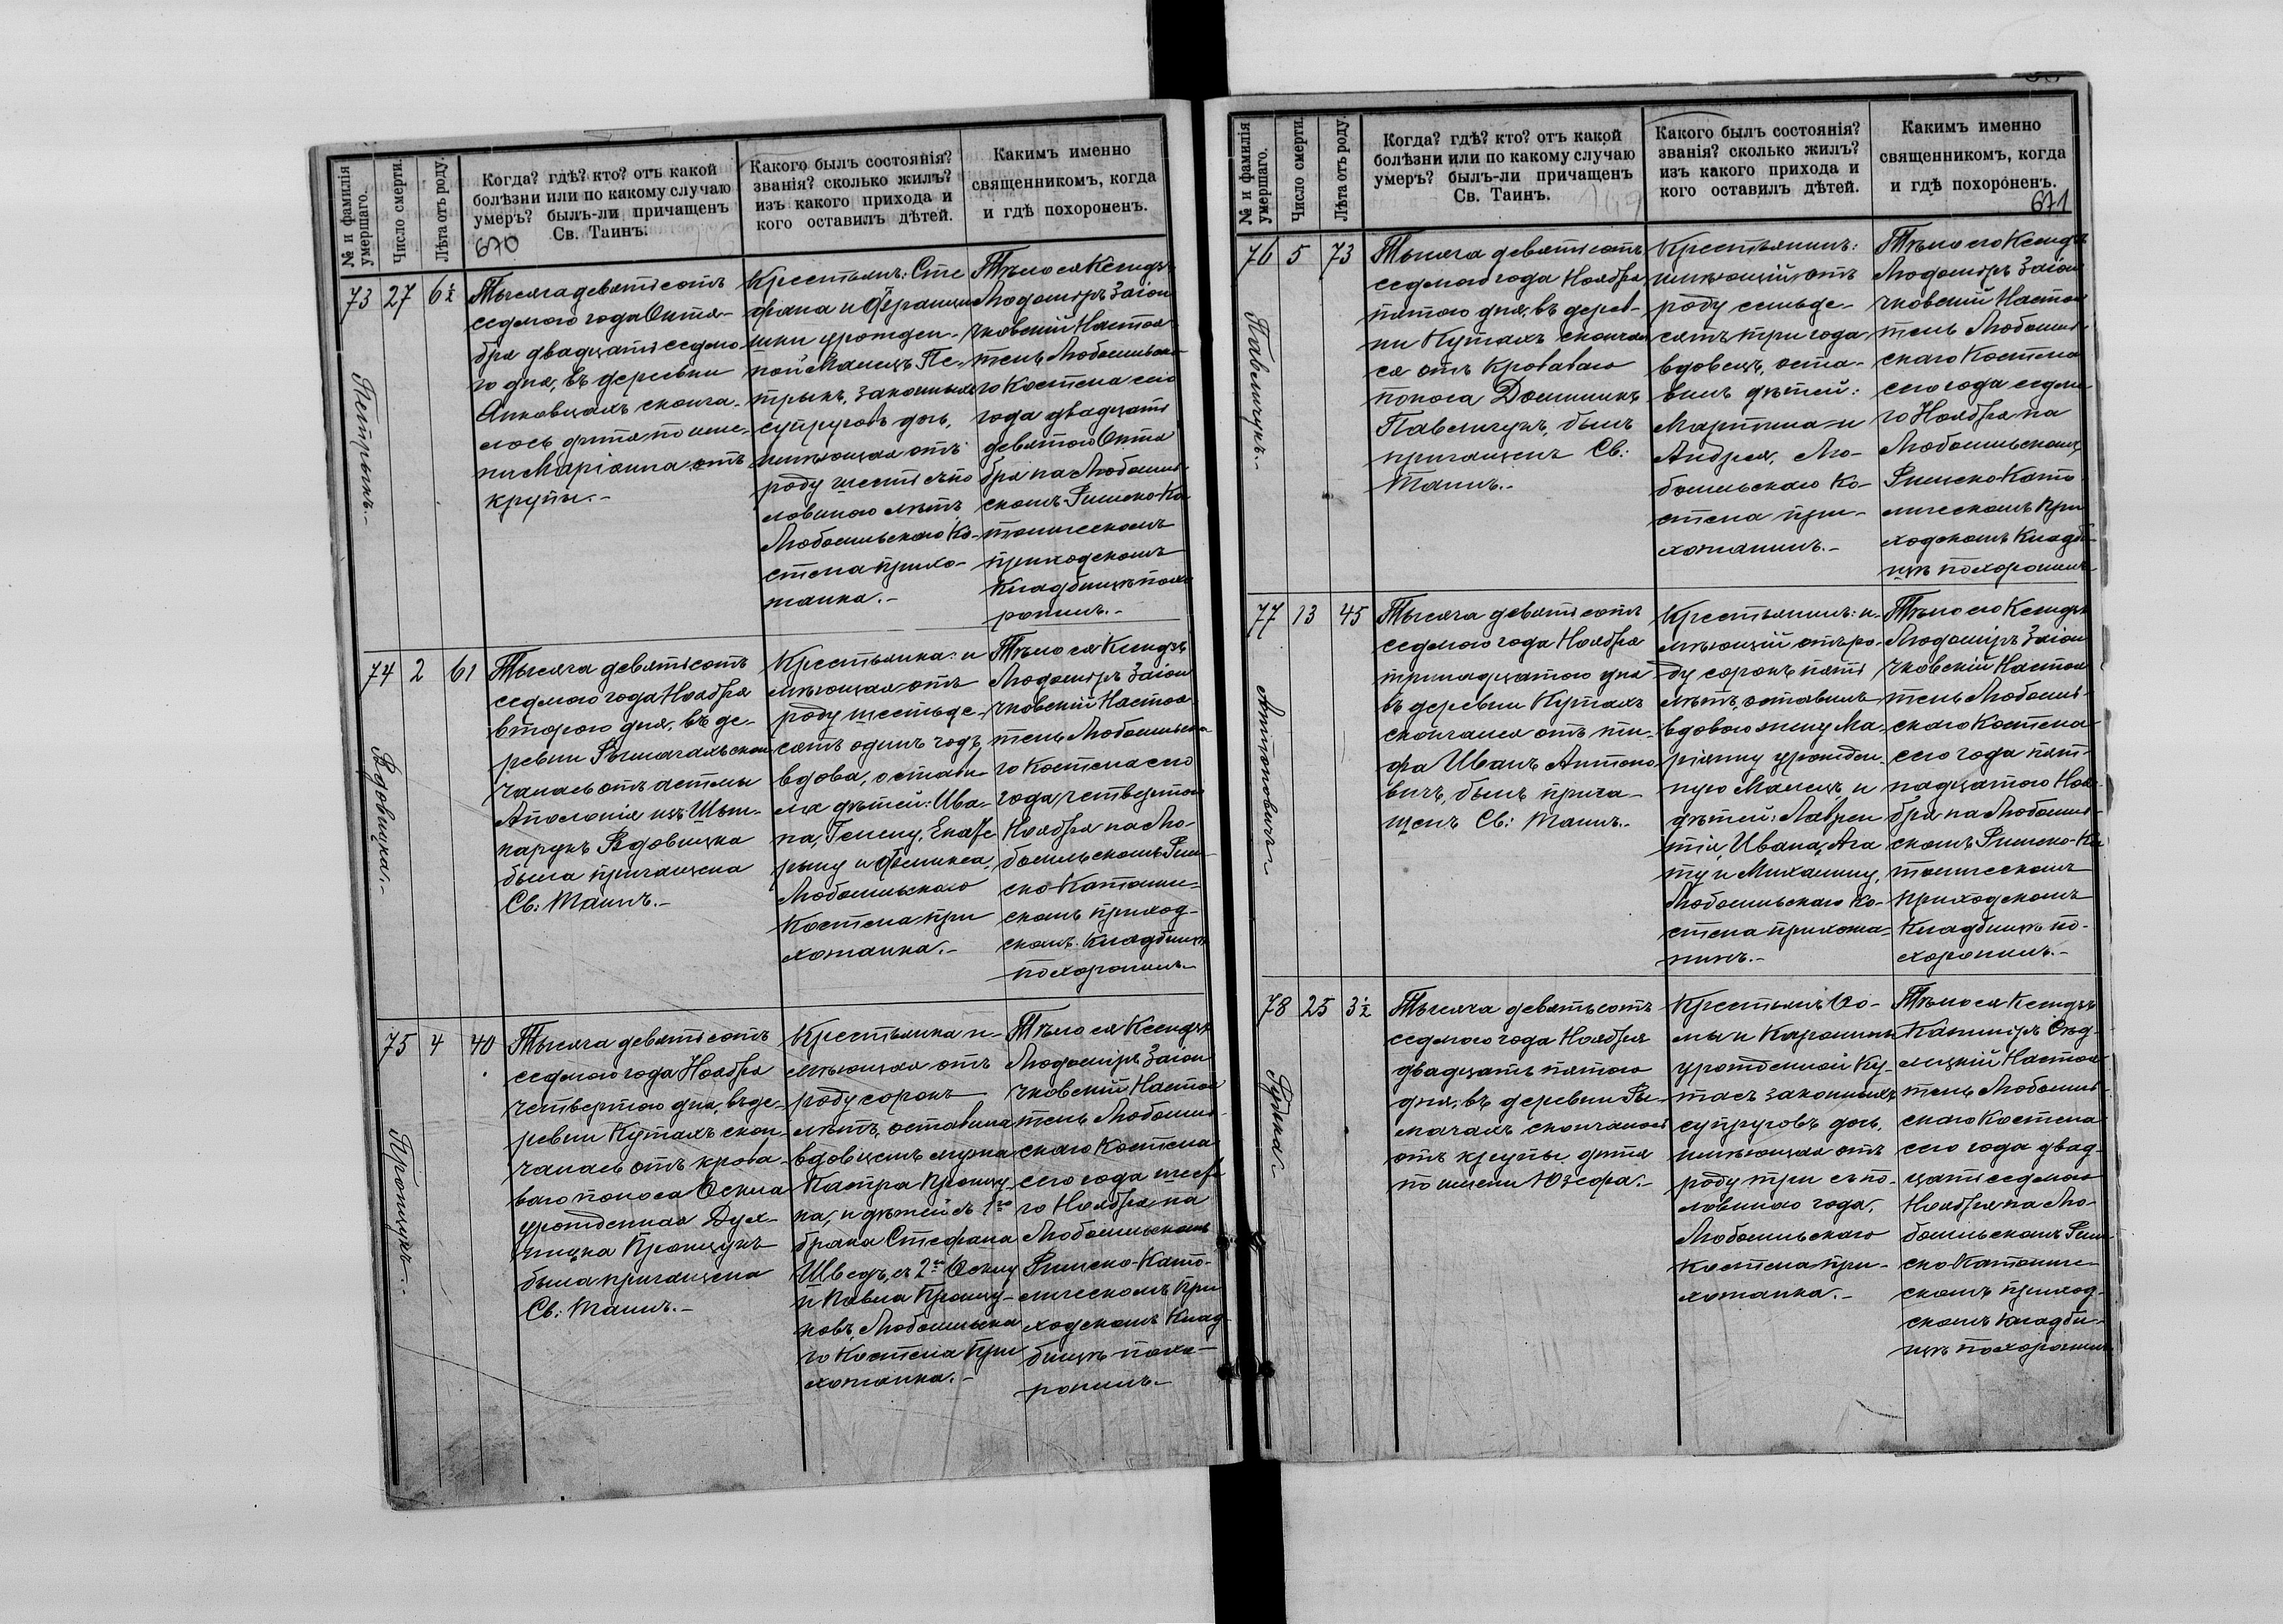 № и фамилія умершаго.
Число смерти.
Лѣта отъ роду.
Когда? гдѣ? кто? отъ какой
болѣзни или по какому случаю
умеръ? былъ-ли причащенъ
Св. Таинъ.
670
Какого былъ состоянія?
званія? сколько жилъ?
изъ какого прихода и
кого оставилъ дѣтей.
Какимъ именно
священникомъ, когда
и гдѣ похороненъ.
73 27 6½
Петрыкъ.-
Тысяча девятьсотъ
седмого года Октя-
бря двадцать седмо-
го дня, въ деревни
скончa-
лось дитя по име-
ни Маріанна отъ
крупы.-
Крестьянъ: Сте
фана и Францишки
урожден-
ной Малецъ Пе-
трыкъ, законныхъ
супруговъ дочь,
имѣющая отъ
роду шесть съ по
ловиною лѣтъ
Любомльскаго Ко-
стела прихо-
жанка.-
Тѣло ея Ксендзъ
Людоміръ Заіон
чковскій Настоя
тель Любомльска-
го Костела сего
года двадцать
девятого Октя
бря на Любомль-
скомъ Римско-Ка
толическомъ
приходскомъ
Кладбищѣ похо
ронилъ.-
74 2 61
Вдовицка.-
Тысяча девятьсотъ
седмого года Ноября
второго дня, въ де-
ревни Рымачахъ скон
чалась отъ астмы
Аполонія изъ
Вдовицка
была причащена
Св: Таинъ.-
Крестьянка: и
мѣющая отъ
роду шестьде-
сятъ одинъ годъ,
вдова, остави-
ла дѣтей: Ива-
на, Гелену, Екате
рыну и Феликса,
Любомльскаго
Костела при
хожанка.-
Тѣло ея Ксендзъ
Людоміръ Заіон
чковскій Настоя
тель Любомльска-
го Костела сего
года четвертого
Ноября на Лю-
бомльскомъ Рим-
ско-Католиче-
скомъ приход-
скомъ Кладбищѣ
похоронилъ.-
75 4 40
Пронцукъ.-
Тысяча девятьсотъ
седмого года Ноября
четвертого дня, въ де-
ревни Кутахъ скон-
чалась отъ крова-
ваго поноса Оскла
урожденная
Пронцукъ
была причащена
Св: Таинъ.-
Крестьянка и-
мѣющая отъ
роду сорокъ
лѣтъ, оставила
вдовцемъ мужа
Петра Пронцу-
ка, и дѣтей съ 1го
брака Стефана
Шведъ, съ 2го
и Павла Пронцу-
ковъ, Любомльска
го Костела при
хожанка.-
Тѣло ея Ксендзъ
Людоміръ Заіон
чковскій Настоя
тель Любомль-
скаго Костела
сего года шест
го Ноября на
Любомльскомъ
Римско-Като-
лическомъ При
ходскомъ Клад-
бищѣ похо-
ронилъ.-
№ и фамилія умершаго.
Число смерти.
Лѣта отъ роду.
Когда? гдѣ? кто? отъ какой
болѣзни или по какому случаю
умеръ? былъ-ли причащенъ
Св. Таинъ.
Какого былъ состоянія?
званія? сколько жилъ?
изъ какого прихода и
кого оставилъ дѣтей.
Какимъ именно
священникомъ, когда
и гдѣ похороненъ.
671
76 5 73
Павельчукъ.-
Тысяча девятьсотъ
седмого года Ноября
пятого дня, въ дерев-
ни Кутахъ скончал
ся отъ Кроваваго
поноса Доминикъ
Павельчукъ, былъ
причащенъ Св:
Таинъ.-
Крестьянинъ:
имѣющій отъ
роду семьде-
сятъ три года
вдовецъ, оста-
вилъ дѣтей:
Мартина и
Андрея, Лю-
бомльскаго Ко-
стела при-
хожанинъ.-
Тѣло его Ксендзъ
Людоміръ Заіон
чковскій Настоя
тель Любомль-
скаго Костела
сего года седмо
го Ноября на
Любомльскомъ
Римско-Като
лическомъ При
ходскомъ Кладби-
щѣ похоронилъ.-
77 13 45
Антоновичъ.-
Тысяча девятьсотъ
седмого года Ноября
тринадцатого дня
въ деревни Кутахъ
скончался отъ ти-
фа Иванъ Антоно
вичъ, былъ прича-
щенъ Св: Таинъ.-
Крестьянинъ: и
мѣющій отъ ро-
ду сорокъ пять
лѣтъ, оставилъ
вдовою жену Ма-
ріянну урожден-
ную Малецъ и
дѣтей: Лаврен
тія, Ивана, Ага
ту и Михалину,
Любомльскаго Ко-
стела прихожа-
нинъ.-
Тѣло его Ксендзъ
Людоміръ Заіон
чковскій Настоя
тель Любомль-
скаго Костела
сего года пят-
надцатого Ноя-
бря на Любомль-
скомъ Римско-Ка
толическомъ
Приходскомъ
Кладбищѣ по-
хоронилъ.-
78 25 3½
Тысяча девятьсотъ
седмого года Ноября
двадцать пятого
дня, въ деревни Ры-
мачахъ скончалось
отъ крупы дитя
по имени Юзефа.-
Крестьянъ
и Каролины
урожденной Ку-
тасъ законныхъ
супруговъ дочь,
имѣющая отъ
роду три съ по-
ловиною года,
Любомльскаго
костела при-
хожанка.-
Тѣло ея Ксендзъ
Казиміръ Сѣд-
лецкій Настоя-
тель Любомль-
скаго Костела
сего года двад-
цать седмого
Ноября на Лю-
бомльскомъ Рим-
ско-Католиче-
скомъ приход-
скомъ кладби-
щѣ похоронилъ.